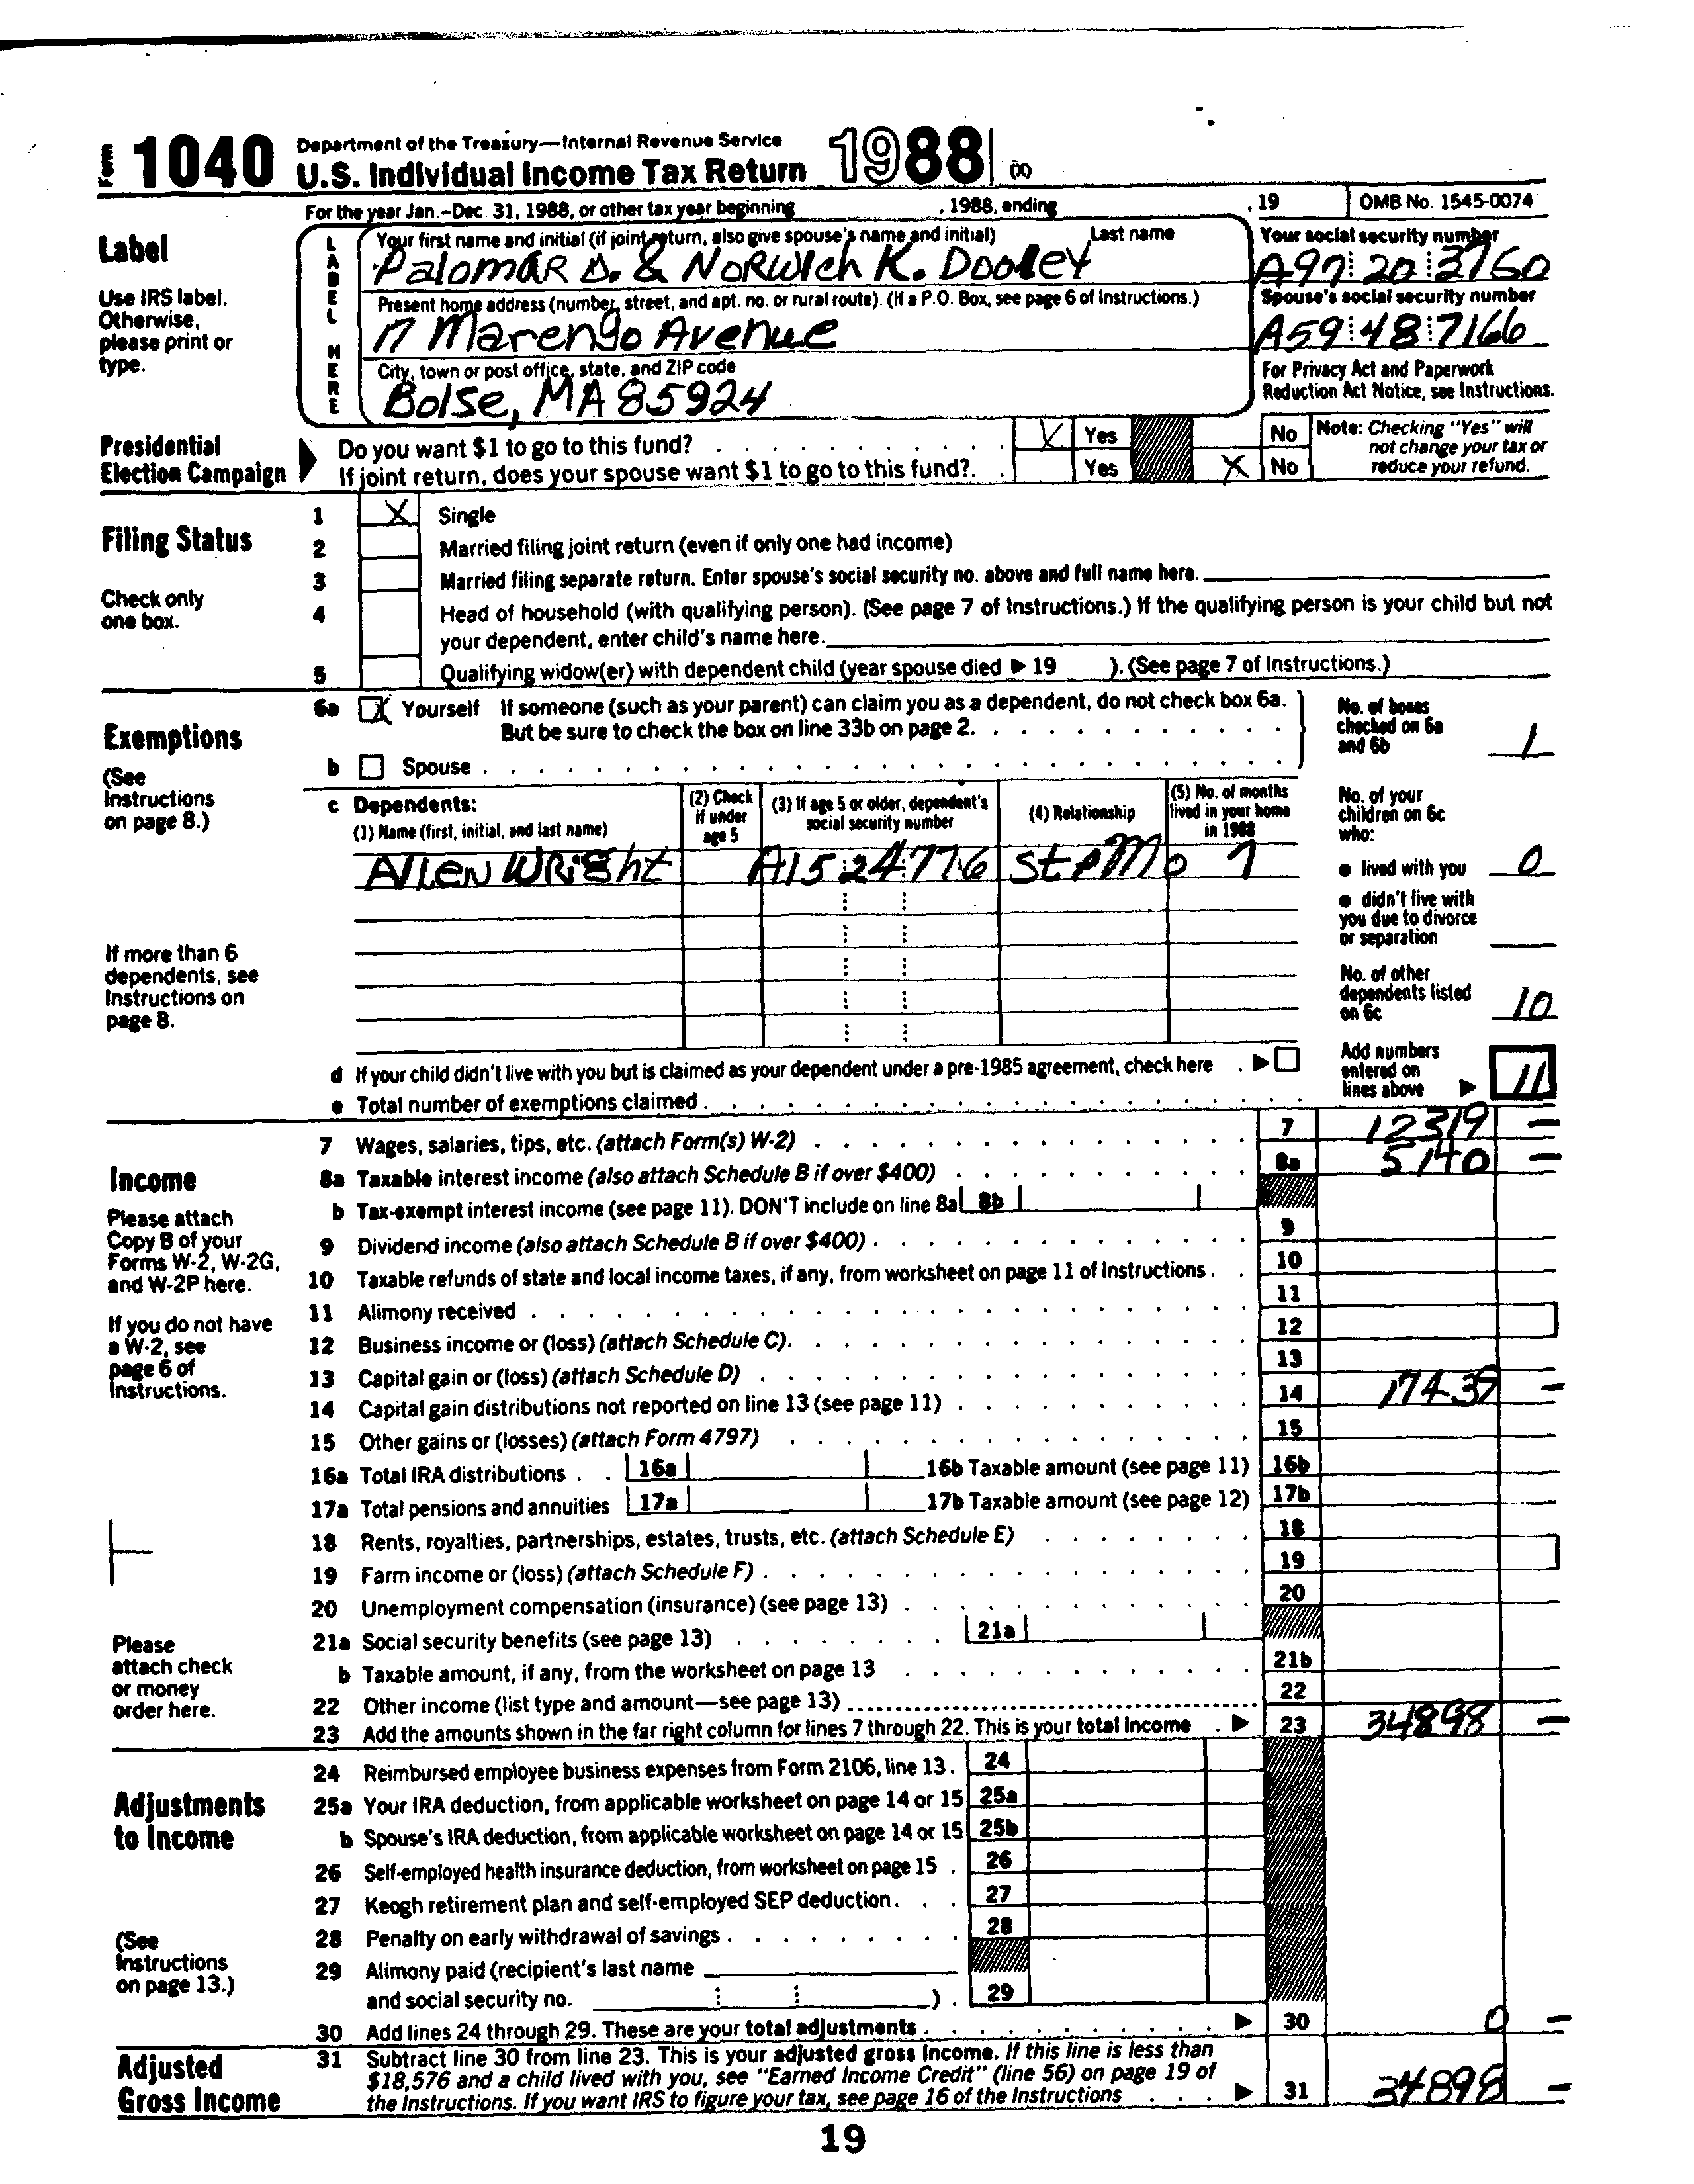 Form 1040 Department of the Treasury—Internal Revenue Service
U.S. Individual Income Tax Return 1988 (X)
For the year Jan.-Dec. 31, 1988, or other tax year beginning , 1988, ending , 19 OMB No. 1545-0074
Label
Use IRS label. Otherwise, please print or type.
LABEL HERE
Your first name and initial (if joint return, also give spouse's name and initial) Last name
Palomar D. & Norwich K. Dooley
Your social security number
A97 20 3760
Present home address (number, street, and apt. no. or rural route). (If a P.O. Box, see page 6 of Instructions.)
17 Marengo Avenue
Spouse's social security number
A59 48 7166
City, town or post office, state, and ZIP code
Bolse, MA 85924
For Privacy Act and Paperwork Reduction Act Notice, see Instructions.
Presidential Election Campaign
Do you want $1 to go to this fund? . . . . . . . . . X Yes No
If joint return, does your spouse want $1 to go to this fund? . . Yes X No
Note: Checking "Yes" will not change your tax or reduce your refund.
Filing Status
Check only one box.
1 X Single
2 Married filing joint return (even if only one had income)
3 Married filing separate return. Enter spouse's social security no. above and full name here.
4 Head of household (with qualifying person). (See page 7 of Instructions.) If the qualifying person is your child but not
your dependent, enter child's name here.
5 Qualifying widow(er) with dependent child (year spouse died ▶ 19 ). (See page 7 of Instructions.)
Exemptions
(See Instructions on page 8.)
6a X Yourself If someone (such as your parent) can claim you as a dependent, do not check box 6a.
But be sure to check the box on line 33b on page 2.
b Spouse
No. of boxes checked on 6a and 6b 1
c Dependents:
(1) Name (first, initial, and last name)
(2) Check if under age 5
(3) If age 5 or older, dependent's social security number
(4) Relationship
(5) No. of months lived in your home in 1988
Allen Wright A15 24 7716 StpMo 7
No. of your children on 6c who:
● lived with you 0
● didn't live with you due to divorce or separation
No. of other dependents listed on 6c 10
If more than 6 dependents, see Instructions on page 8.
d If your child didn't live with you but is claimed as your dependent under a pre-1985 agreement, check here . ▶
e Total number of exemptions claimed
Add numbers entered on lines above ▶ 11
Income
Please attach Copy B of your Forms W-2, W-2G, and W-2P here.
If you do not have a W-2, see page 6 of Instructions.
Please attach check or money order here.
7 Wages, salaries, tips, etc. (attach Form(s) W-2) 7 12319 —
8a Taxable interest income (also attach Schedule B if over $400) 8a 5140 —
b Tax-exempt interest income (see page 11). DON'T include on line 8a 8b
9 Dividend income (also attach Schedule B if over $400) 9
10 Taxable refunds of state and local income taxes, if any, from worksheet on page 11 of Instructions 10
11 Alimony received 11
12 Business income or (loss) (attach Schedule C) 12
13 Capital gain or (loss) (attach Schedule D) 13
14 Capital gain distributions not reported on line 13 (see page 11) 14 17439 —
15 Other gains or (losses) (attach Form 4797) 15
16a Total IRA distributions 16a 16b Taxable amount (see page 11) 16b
17a Total pensions and annuities 17a 17b Taxable amount (see page 12) 17b
18 Rents, royalties, partnerships, estates, trusts, etc. (attach Schedule E) 18
19 Farm income or (loss) (attach Schedule F) 19
20 Unemployment compensation (insurance) (see page 13) 20
21a Social security benefits (see page 13) 21a
b Taxable amount, if any, from the worksheet on page 13 21b
22 Other income (list type and amount—see page 13) 22
23 Add the amounts shown in the far right column for lines 7 through 22. This is your total income ▶ 23 34898 —
Adjustments to Income
(See Instructions on page 13.)
24 Reimbursed employee business expenses from Form 2106, line 13. 24
25a Your IRA deduction, from applicable worksheet on page 14 or 15 25a
b Spouse's IRA deduction, from applicable worksheet on page 14 or 15 25b
26 Self-employed health insurance deduction, from worksheet on page 15 26
27 Keogh retirement plan and self-employed SEP deduction 27
28 Penalty on early withdrawal of savings 28
29 Alimony paid (recipient's last name
and social security no. ) 29
30 Add lines 24 through 29. These are your total adjustments ▶ 30 0 —
Adjusted Gross Income
31 Subtract line 30 from line 23. This is your adjusted gross income. If this line is less than
$18,576 and a child lived with you, see "Earned Income Credit" (line 56) on page 19 of
the Instructions. If you want IRS to figure your tax, see page 16 of the Instructions ▶ 31 34898 —
19